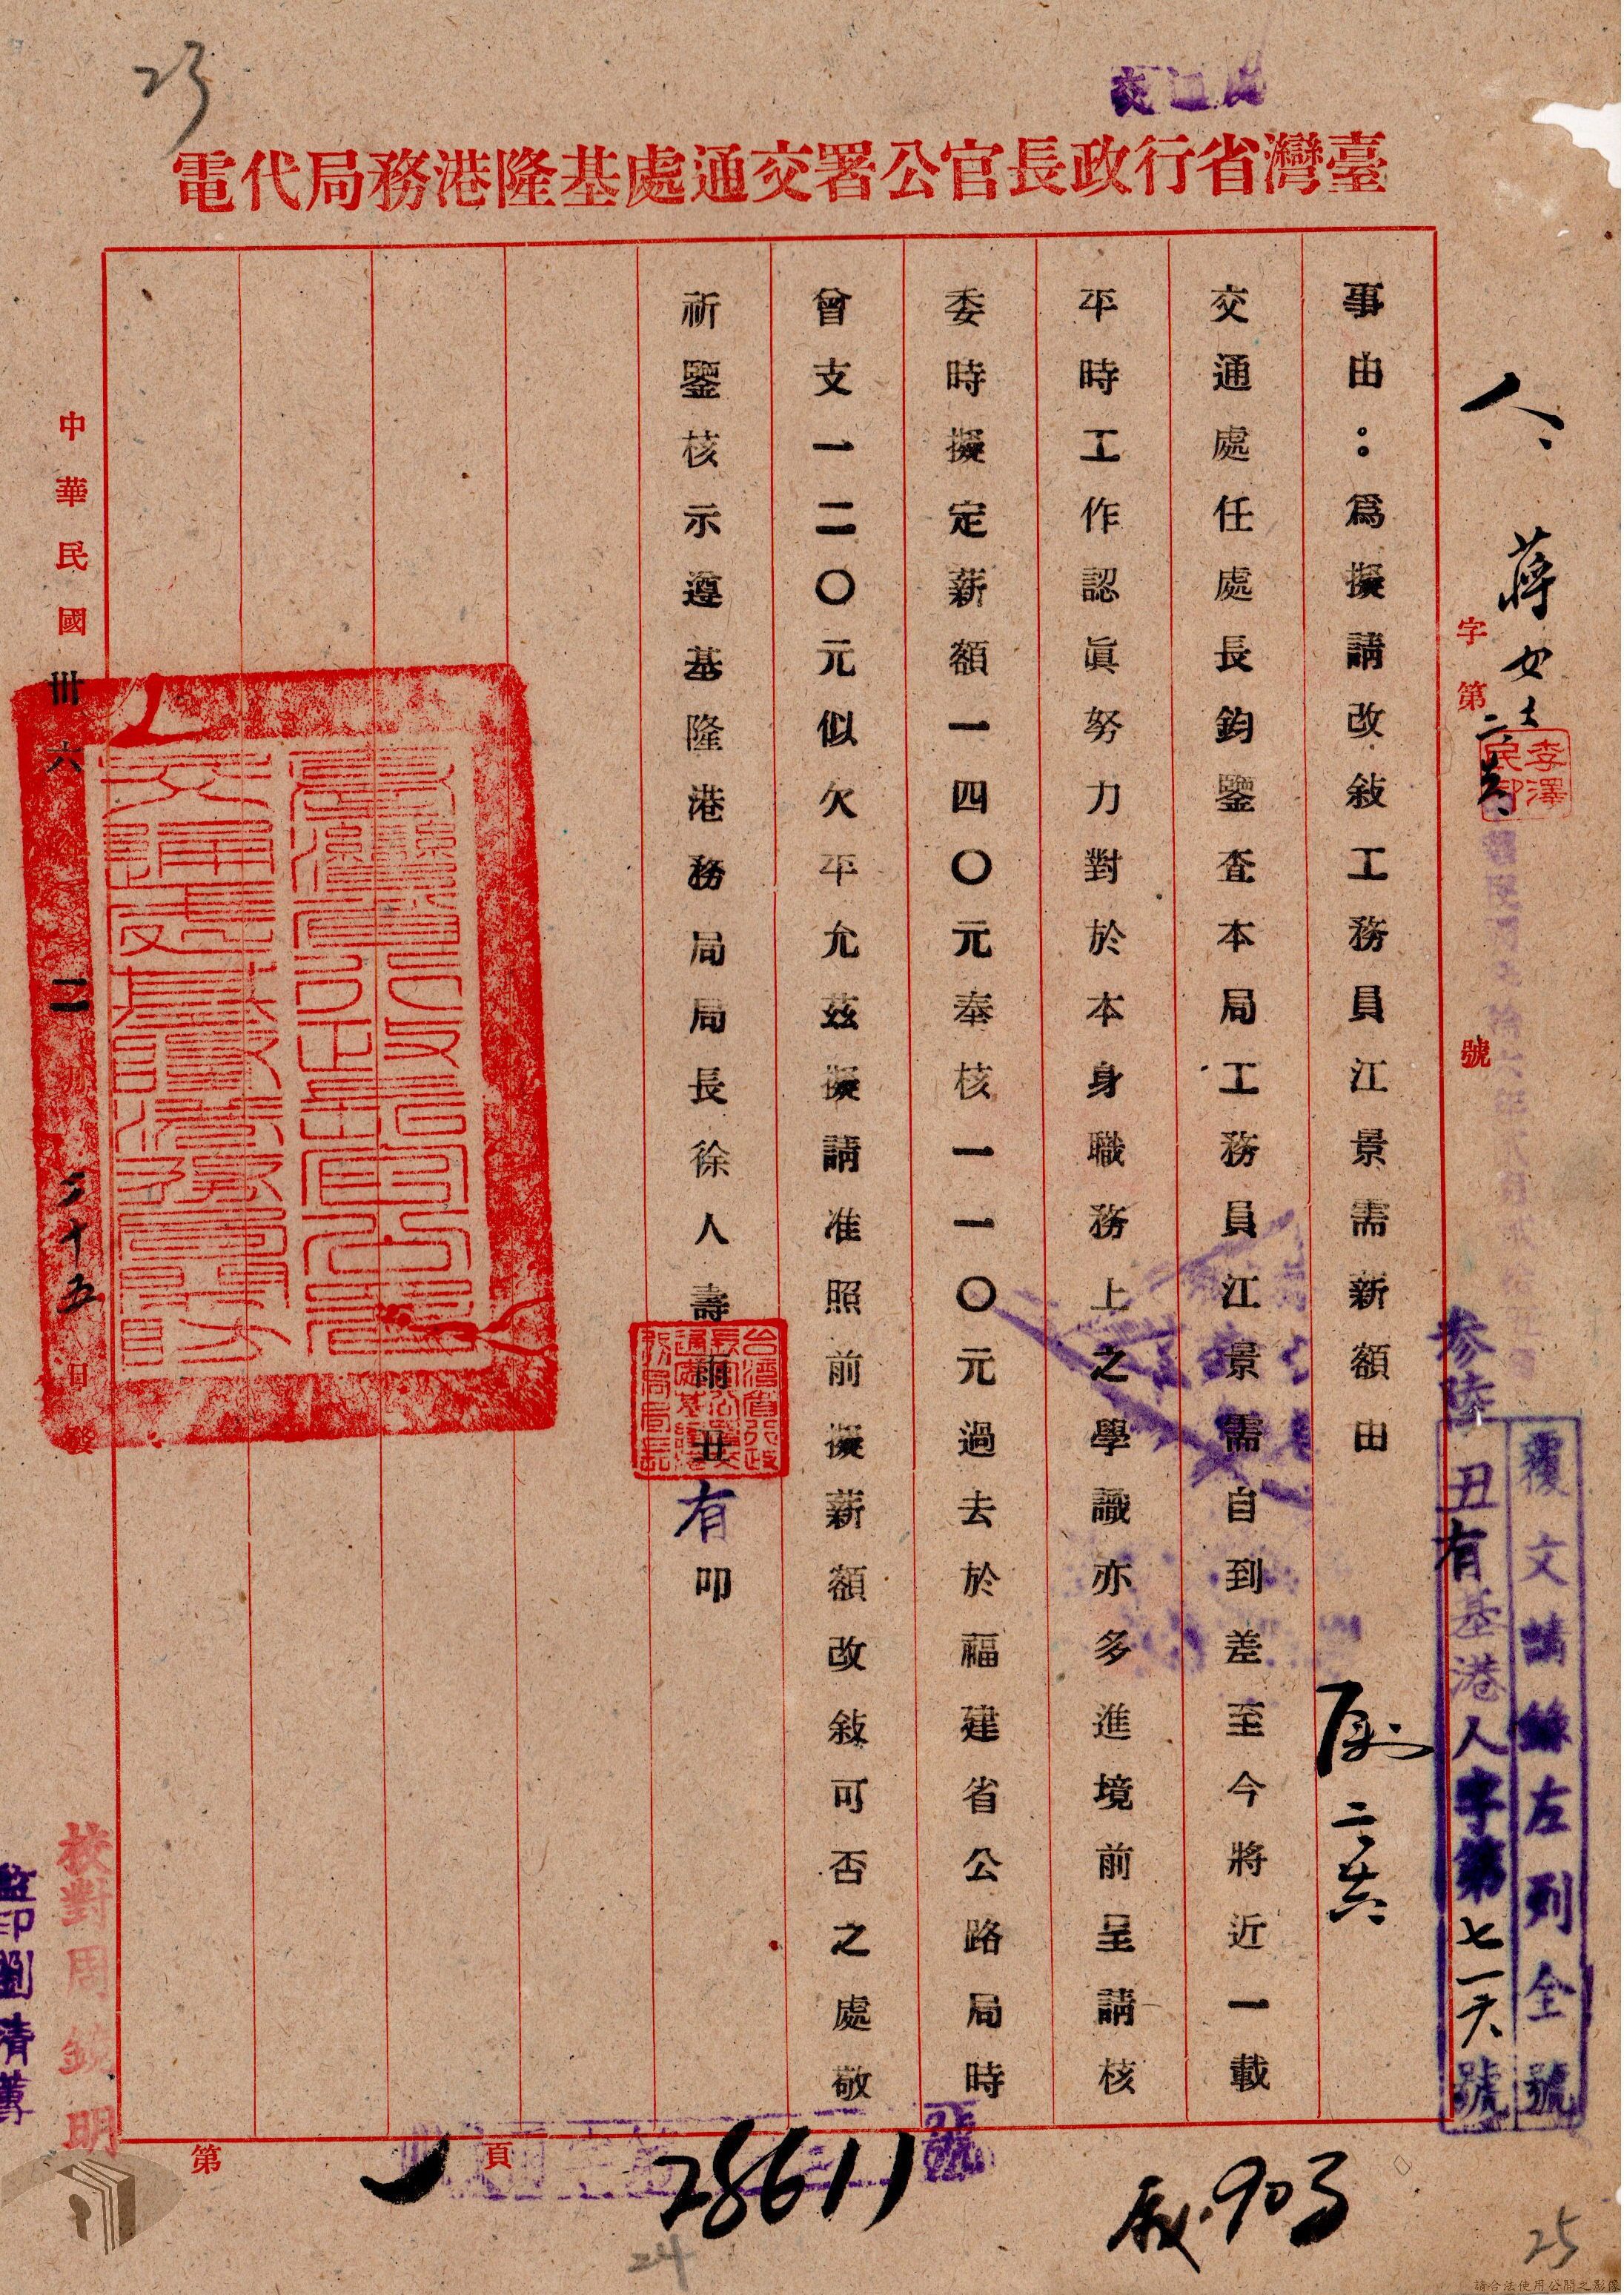 23
交通處
臺灣省行政長官公署交通處基隆港務局代電
人、
蔣女士
李澤民印
字第 號
覆文請錄左列全號
參陸丑有基港人字第七一六號
事由：為擬請改敍工務員江景需新額由
交通處任處長鈞鑒查本局工務員江景需自到差至今將近一載
平時工作認眞努力對於本身職務上之學識亦多進境前呈請核
委時擬定薪額一四〇元奉核一一〇元過去於福建省公路局時
曾支一二〇元似欠平允茲擬請准照前擬薪額改敍可否之處敬
祈鑒核示遵基隆港務局局長徐人壽兩丑有叩
台灣省行政長官公署交通處基隆港務局局長
臺灣省行政長官公署交通處基隆港務局關防
中華民國卅六年二月二十五日發
校對周鏡明
監印劉清萍
第一頁
號
28611
903
24
25
請合法使用公開之影像